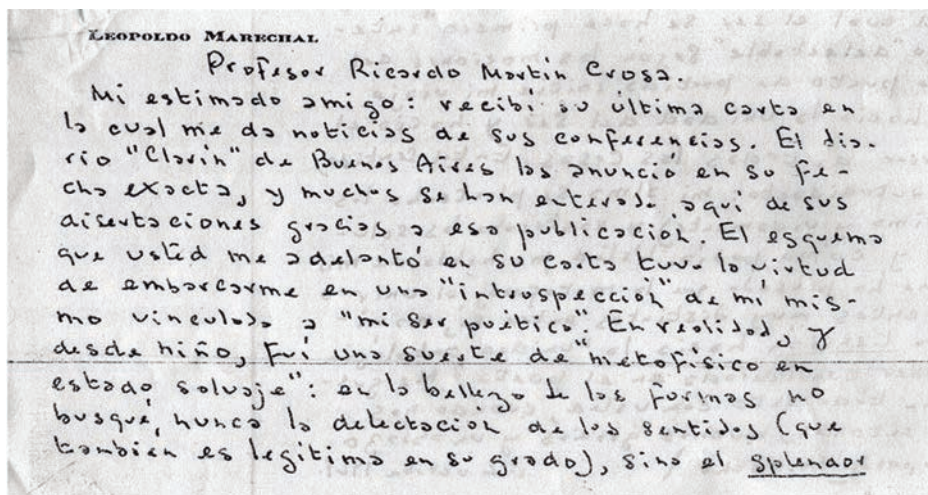 LEOPOLDO MARECHAL
Profesor Ricardo Martín Crosa.
Mi estimado amigo: recibí su última carta en
la cual me da noticias de sus conferencias. El dia-
rio "Clarín" de Buenos Aires las anunció en su fe-
cha exacta, y muchos se han enterado aquí de sus
disertaciones gracias a esa publicación. El esquema
que usted me adelantó en su carta tuvo la virtud
de embarcarme en una "introspección" de mí mis-
mo vinculada a "mi ser poético". En realidad, y
desde niño, fuí una suerte de "metafísico en
estado salvaje": en la belleza de las formas no
busqué, nunca la delectación de los sentidos (que
también es legítima en su grado), sino el splendor